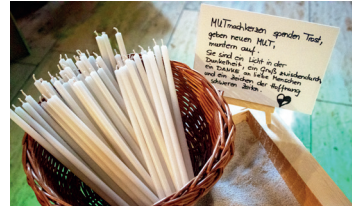 MUTmachkerzen spenden Trost,
geben neuen MUT,
muntern auf.
Sie sind ein Licht in der
Dunkelheit, ein Gruß zwischendurch,
ein DANKE an liebe Menschen
und ein Zeichen der Hoffnung
schweren Zeiten.